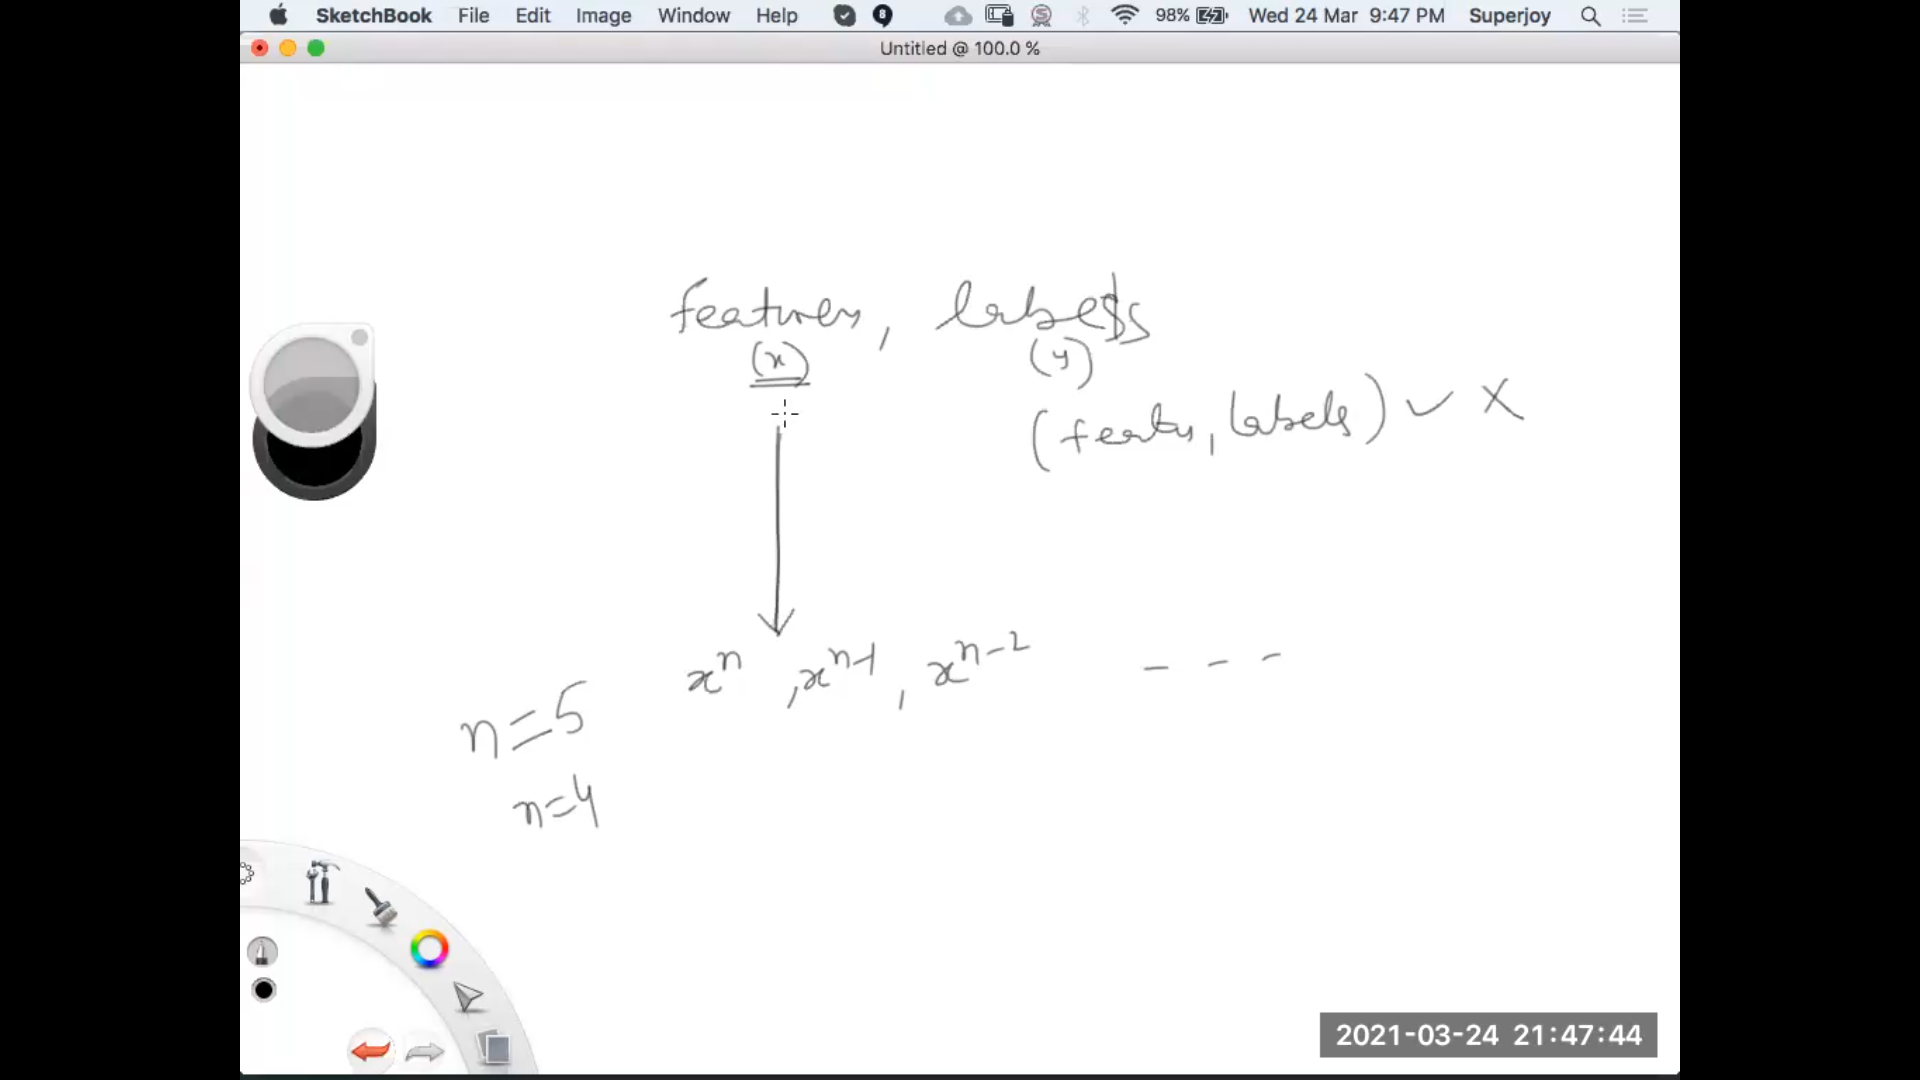 SketchBook File Edit Image Window Help 8 98% Wed 24 Mar 9:47 PM Superjoy
Untitled @ 100.0 %
features, labels
(x) (y)
(featus, labels) ✓ X
xⁿ, xⁿ⁻¹, xⁿ⁻² - - -
n=5
n=4
2021-03-24 21:47:44